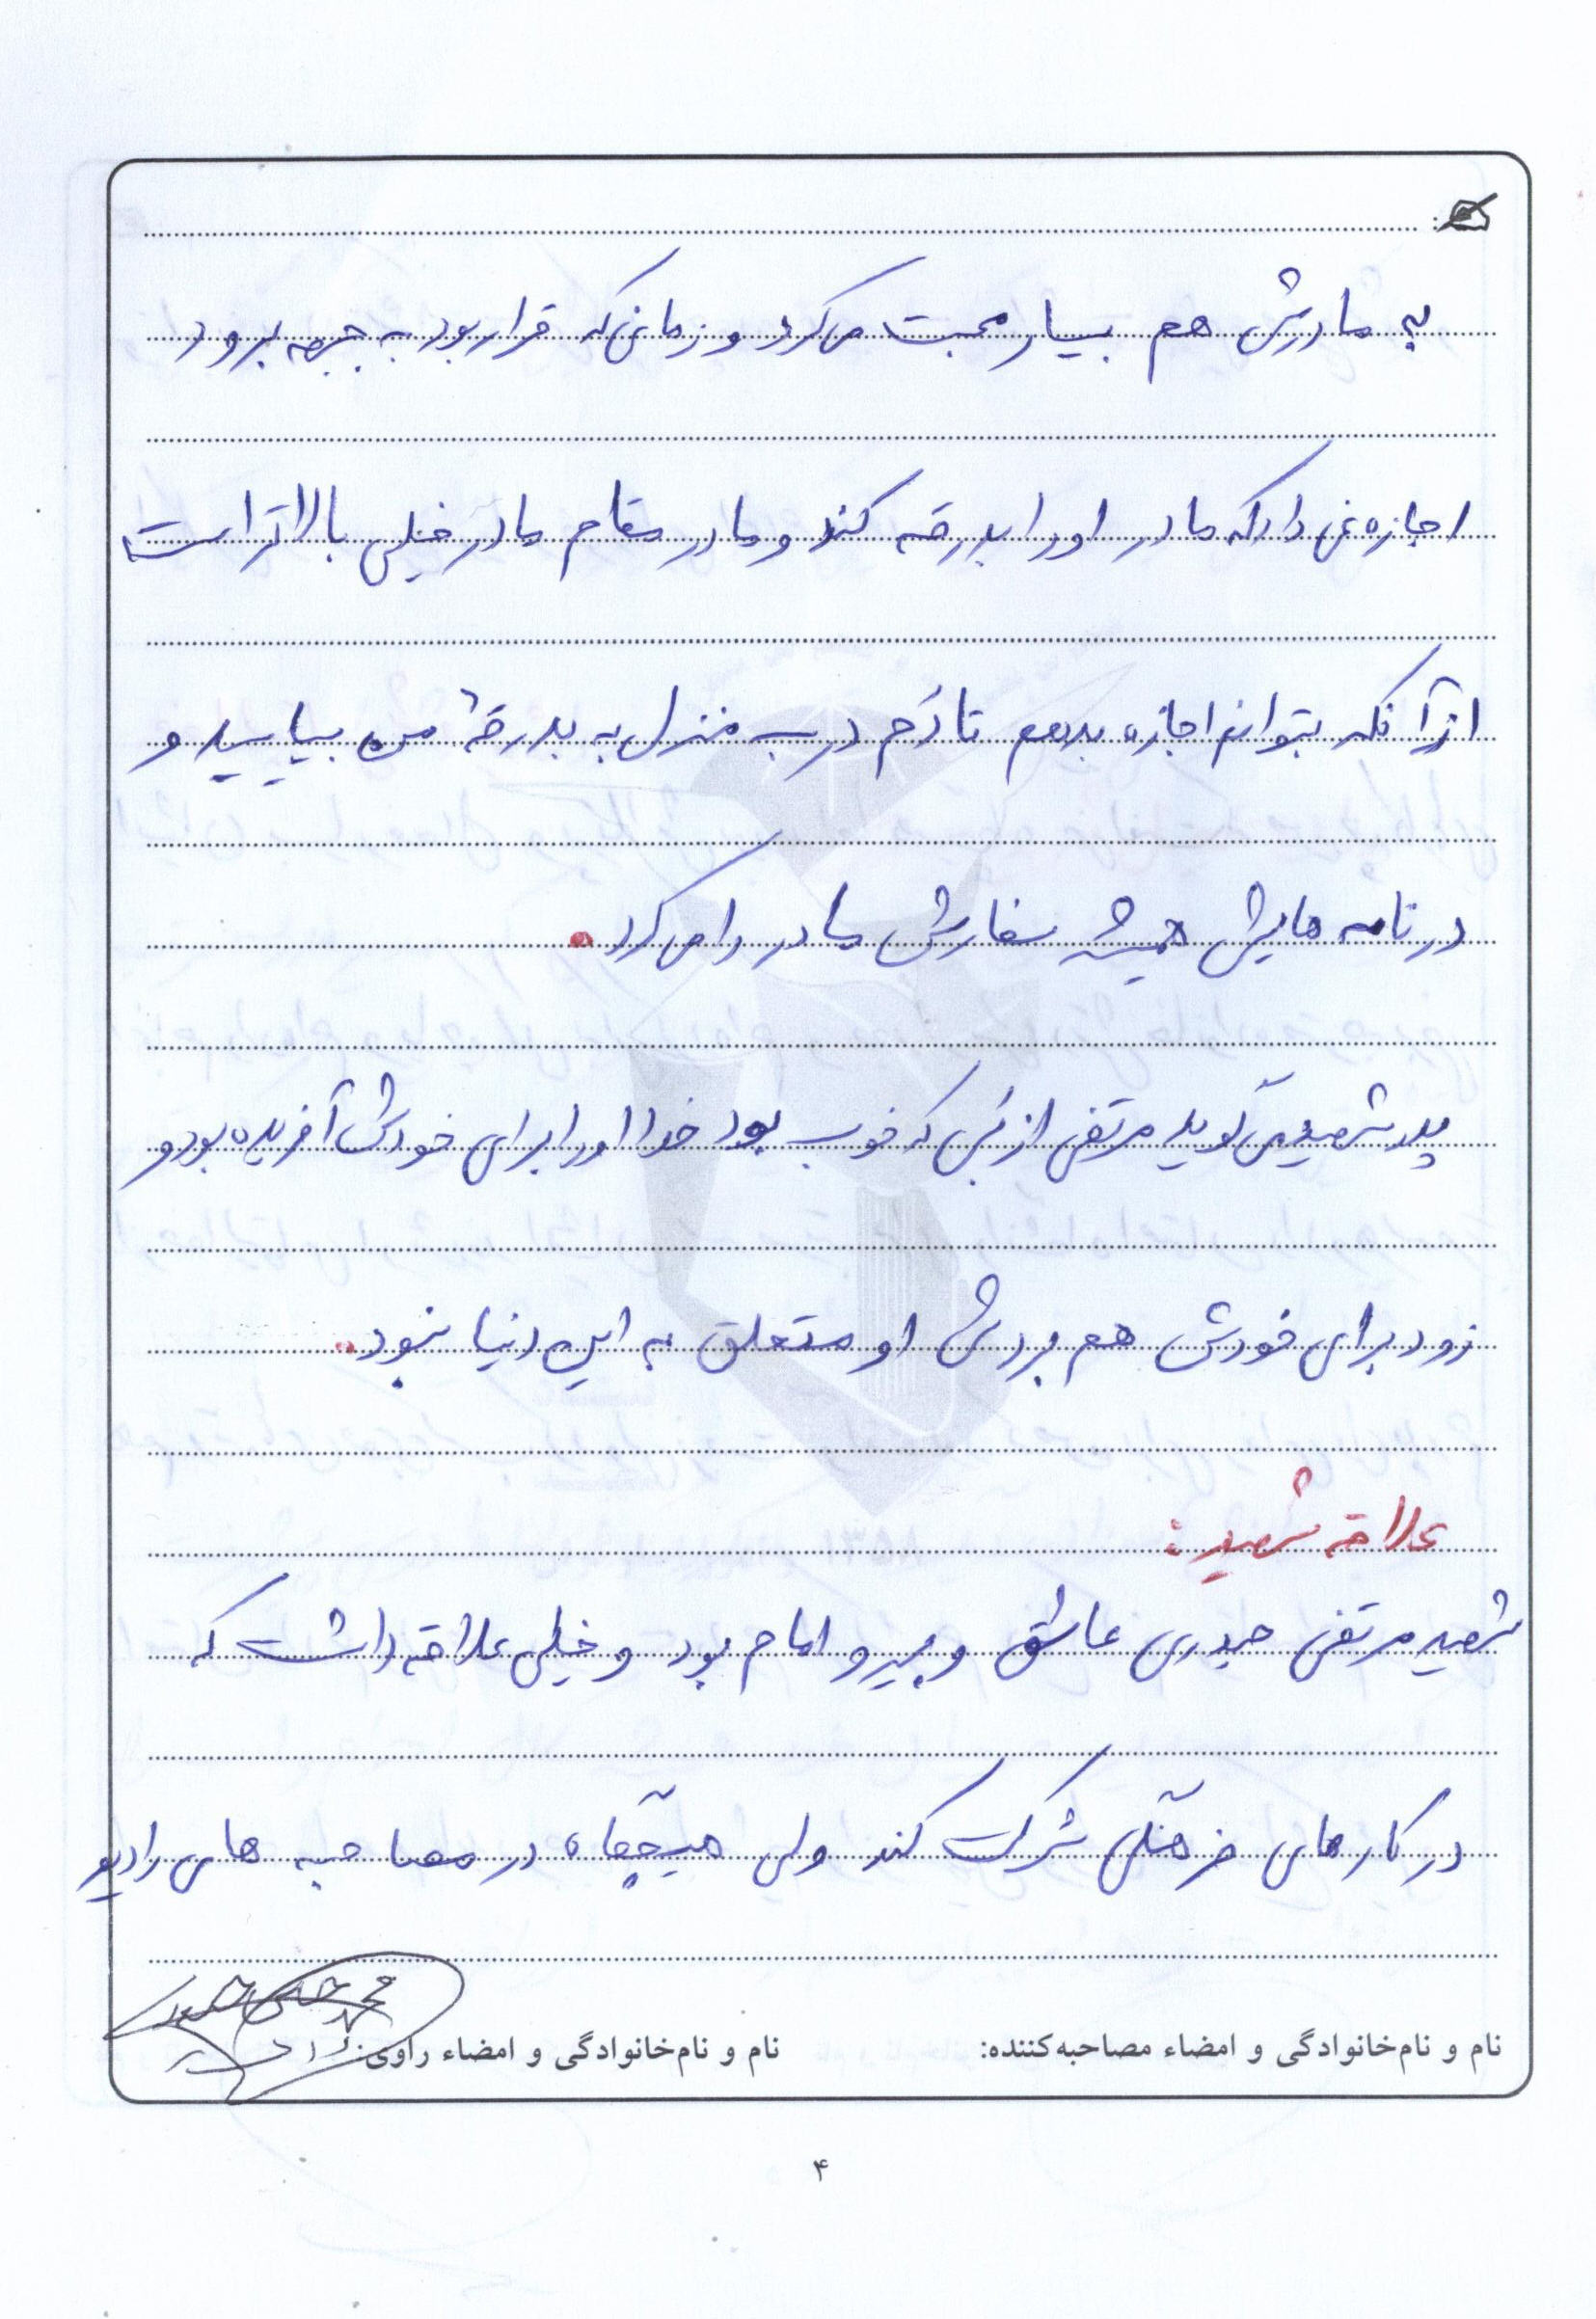 به مادرش هم بسیار محبت می‌کرد و زمانی که قرار بود به جبهه برود
اجازه نمی داد که مادر او را بدرقه کند و مادر مقام مادر خیلی بالاتر است
از آنکه بتوانم اجازه بدهم تا دَم درب منزل به بدرقهٔ من بیایید و
در نامه هایش همیشه سفارش مادر را می کرد.
پدر شهید می گوید مرتضی از بَس که خوب بود خدا او را برای خودش آفریده بود و
زود برای خودش هم بردش او متعلق به این دنیا نبود..
علاقه شهید:
شهید مرتضی حیدری عاشق و پیرو امام بود و خیلی علاقه داشت که
در کارهای فرهنگی شرکت کند ولی هیچگاه در مصاحبه های رادیو
نام و نام‌خانوادگی و امضاء مصاحبه‌کننده: نام و نام‌خانوادگی و امضاء راوی:
۴